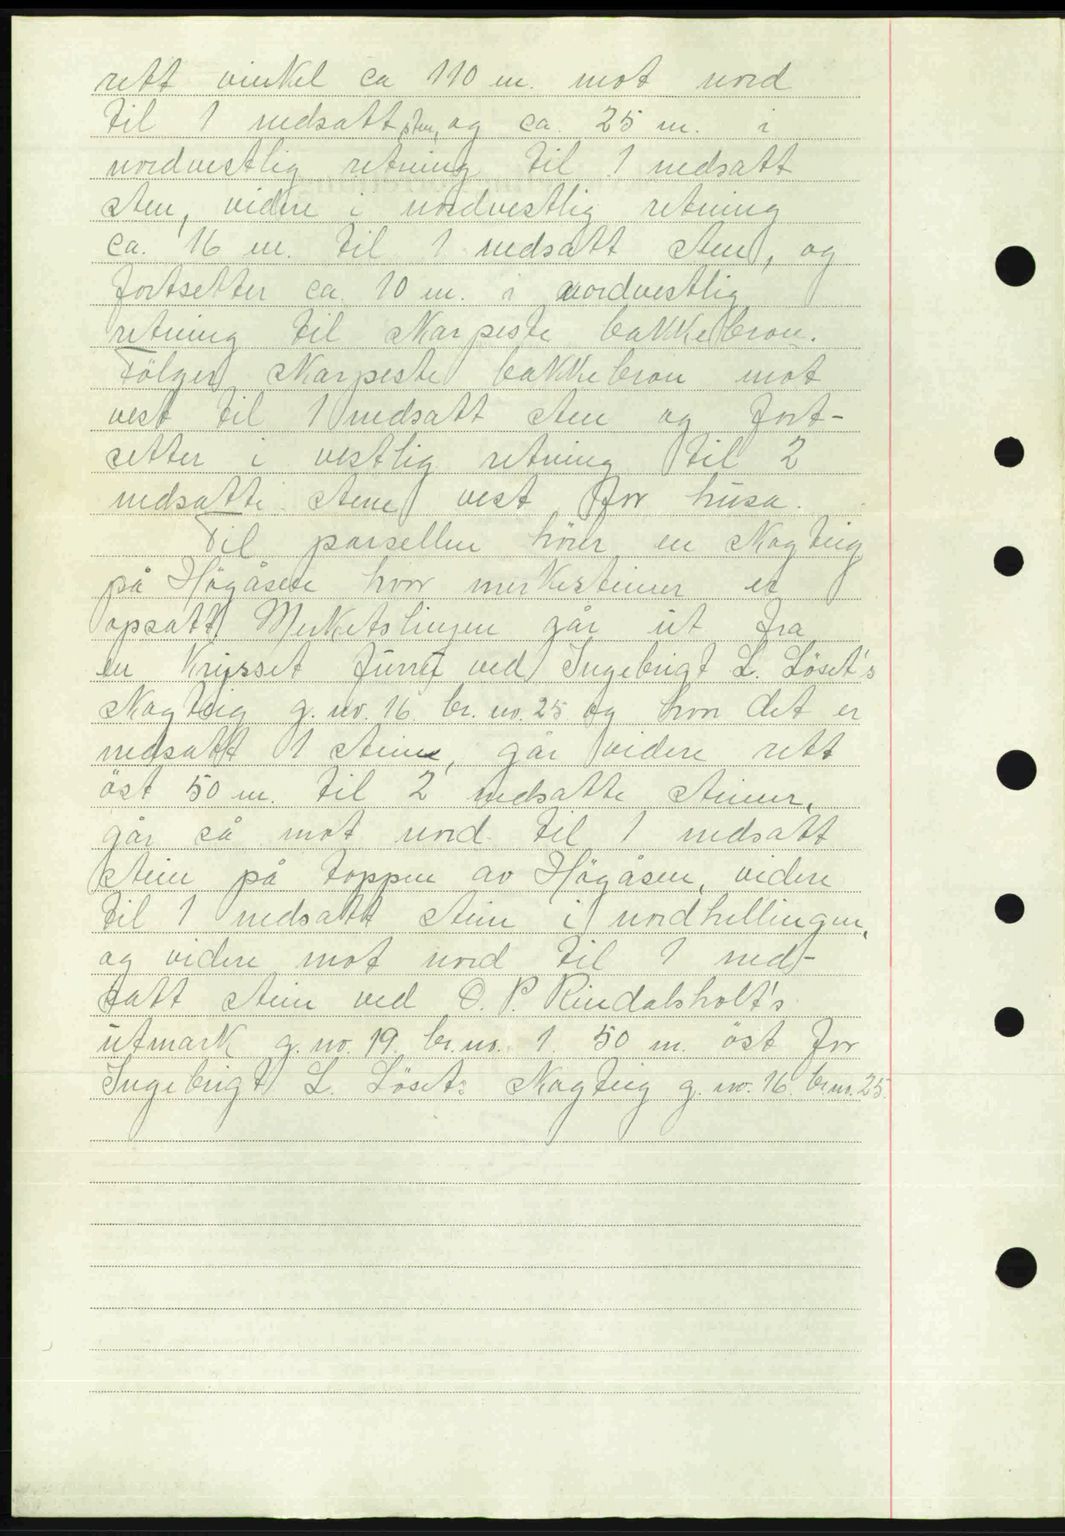 rett vinkel ca 110 m. mot nord
til 1 nedsatt sten, og ca. 25 m. i
nordvestlig retning til 1 nedsatt
sten, videre i nordvestlig retning
ca. 16 m. til 1 nedsatt sten, og
fortsetter ca. 10 m. i nordvestlig
retning til skarpeste bakkebron.
Följer skarpeste bakkebron mot
vest til 1 nedsatt sten og fort-
setter i vestlig retning til 2
nedsatte stene vest for husa.
Til parsellen hörer en skogteig
på Högåsen hvor merkesteiner er
opsatt. Merketslinjen går ut fra
en krysset furre ved Ingebrigt L. Löset's
skogteig g. nr. 16 br. nr. 25 og hvor det er
nedsatt 1 stein, går videre rett
öst 50 m. til 2 nedsatte steiner,
går så mot nord til 1 nedsatt
stein på toppen av Högåsen, videre
til 1 nedsatt stein i nordhellingen,
og videre mot nord til 1 ned-
satt stein ved O. P. Rindalsholt's
utmark g. no. 19. br. nr. 1. 50 m. öst for
Ingebrigt L. Löset's skogteig g. no. 16. br. nr. 25.